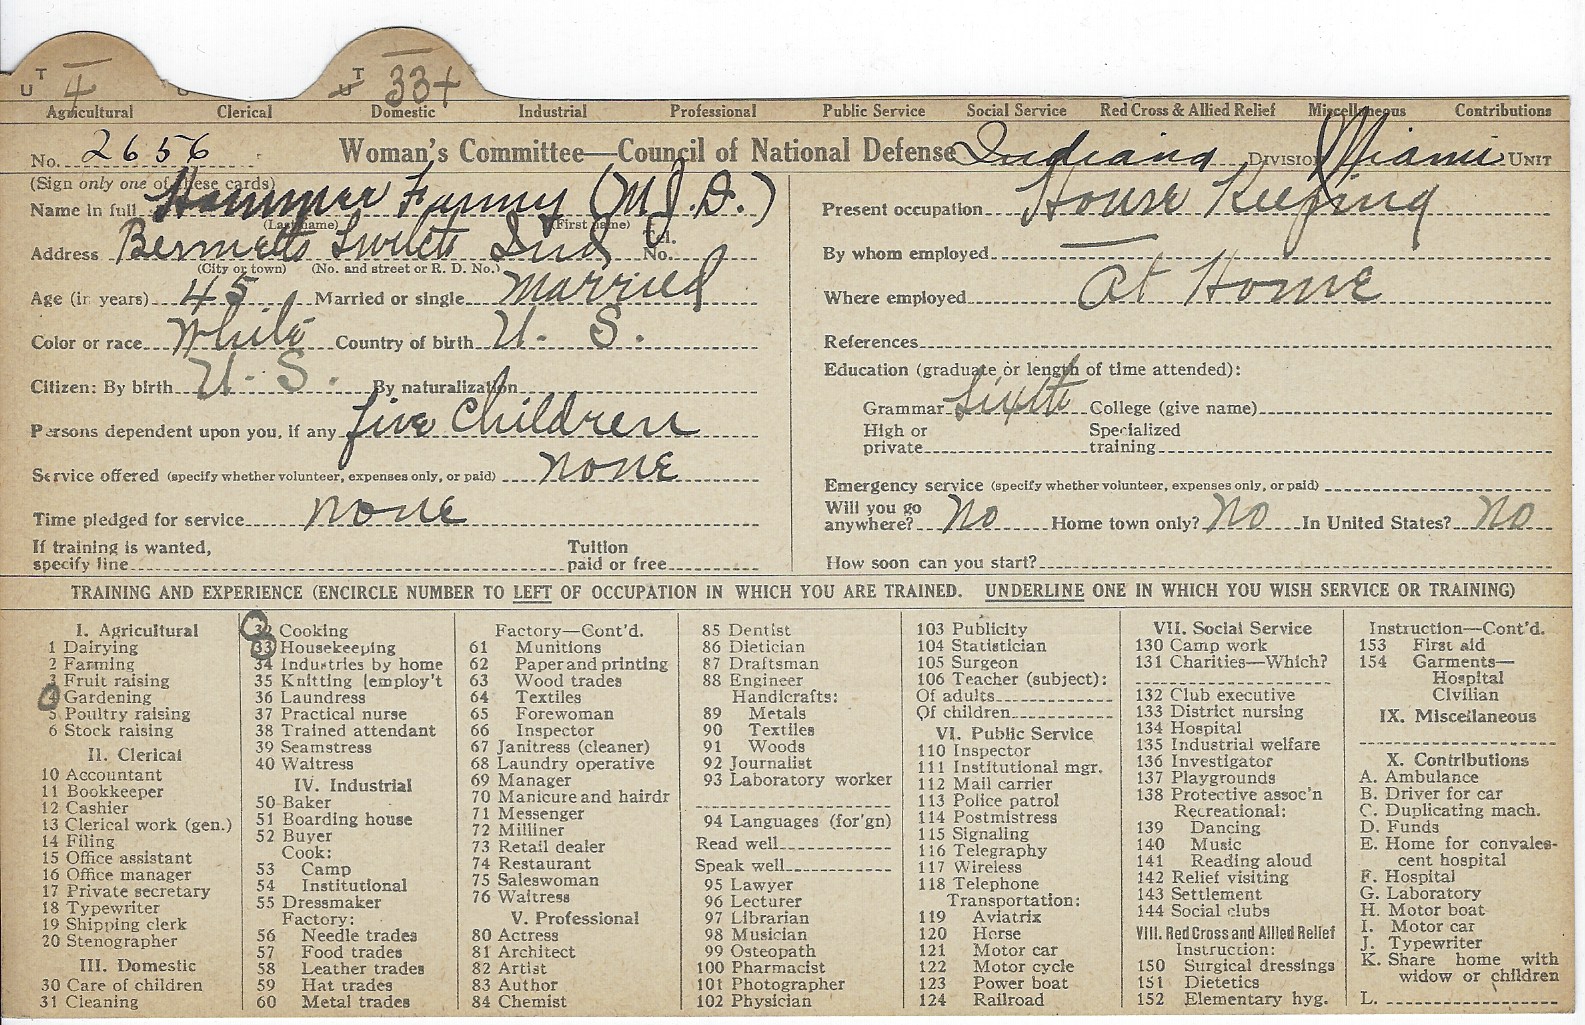 U T 4
U T 33+
Agricultural Clerical Domestic Industrial Professional Public Service Social Service Red Cross & Allied Relief Miscellaneous Contributions
No. 2656 Woman's Committee—Council of National Defense Indiana DIVISION Miami UNIT
(Sign only one of these cards)
Name in full Hammer Fanny (M.J.D.)
(Last name) (First name)
Address Bennetts Switch Ind Tel. No.
(City or town) (No. and street or R. D. No.)
Age (in years) 45 Married or single Married
Color or race White Country of birth U. S.
Citizen: By birth U. S. By naturalization
Persons dependent upon you, if any five Children
Service offered (specify whether volunteer, expenses only, or paid) none
Time pledged for service none
If training is wanted, specify line Tuition paid or free
Present occupation House Keeping
By whom employed —
Where employed At Home
References
Education (graduate or length of time attended):
Grammar Sixth College (give name)
High or private Specialized training
Emergency service (specify whether volunteer, expenses only, or paid)
Will you go anywhere? No Home town only? No In United States? No
How soon can you start?
TRAINING AND EXPERIENCE (ENCIRCLE NUMBER TO LEFT OF OCCUPATION IN WHICH YOU ARE TRAINED. UNDERLINE ONE IN WHICH YOU WISH SERVICE OR TRAINING)
I. Agricultural
1 Dairying
2 Farming
3 Fruit raising
4 Gardening
5 Poultry raising
6 Stock raising
II. Clerical
10 Accountant
11 Bookkeeper
12 Cashier
13 Clerical work (gen.)
14 Filing
15 Office assistant
16 Office manager
17 Private secretary
18 Typewriter
19 Shipping clerk
20 Stenographer
III. Domestic
30 Care of children
31 Cleaning
32 Cooking
33 Housekeeping
34 Industries by home
35 Knitting [employ't
36 Laundress
37 Practical nurse
38 Trained attendant
39 Seamstress
40 Waitress
IV. Industrial
50 Baker
51 Boarding house
52 Buyer
Cook:
53 Camp
54 Institutional
55 Dressmaker
Factory:
56 Needle trades
57 Food trades
58 Leather trades
59 Hat trades
60 Metal trades
Factory—Cont'd.
61 Munitions
62 Paper and printing
63 Wood trades
64 Textiles
65 Forewoman
66 Inspector
67 Janitress (cleaner)
68 Laundry operative
69 Manager
70 Manicure and hairdr
71 Messenger
72 Milliner
73 Retail dealer
74 Restaurant
75 Saleswoman
76 Waitress
V. Professional
80 Actress
81 Architect
82 Artist
83 Author
84 Chemist
85 Dentist
86 Dietician
87 Draftsman
88 Engineer
Handicrafts:
89 Metals
90 Textiles
91 Woods
92 Journalist
93 Laboratory worker
94 Languages (for'gn)
Read well
Speak well
95 Lawyer
96 Lecturer
97 Librarian
98 Musician
99 Osteopath
100 Pharmacist
101 Photographer
102 Physician
103 Publicity
104 Statistician
105 Surgeon
106 Teacher (subject):
Of adults
Of children
VI. Public Service
110 Inspector
111 Institutional mgr.
112 Mail carrier
113 Police patrol
114 Postmistress
115 Signaling
116 Telegraphy
117 Wireless
118 Telephone
Transportation:
119 Aviatrix
120 Horse
121 Motor car
122 Motor cycle
123 Power boat
124 Railroad
VII. Social Service
130 Camp work
131 Charities—Which?
132 Club executive
133 District nursing
134 Hospital
135 Industrial welfare
136 Investigator
137 Playgrounds
138 Protective assoc'n
Recreational:
139 Dancing
140 Music
141 Reading aloud
142 Relief visiting
143 Settlement
144 Social clubs
VIII. Red Cross and Allied Relief
Instruction:
150 Surgical dressings
151 Dietetics
152 Elementary hyg.
Instruction—Cont'd.
153 First aid
154 Garments—
Hospital
Civilian
IX. Miscellaneous
X. Contributions
A. Ambulance
B. Driver for car
C. Duplicating mach.
D. Funds
E. Home for convales-
cent hospital
F. Hospital
G. Laboratory
H. Motor boat
I. Motor car
J. Typewriter
K. Share home with
widow or children
L.